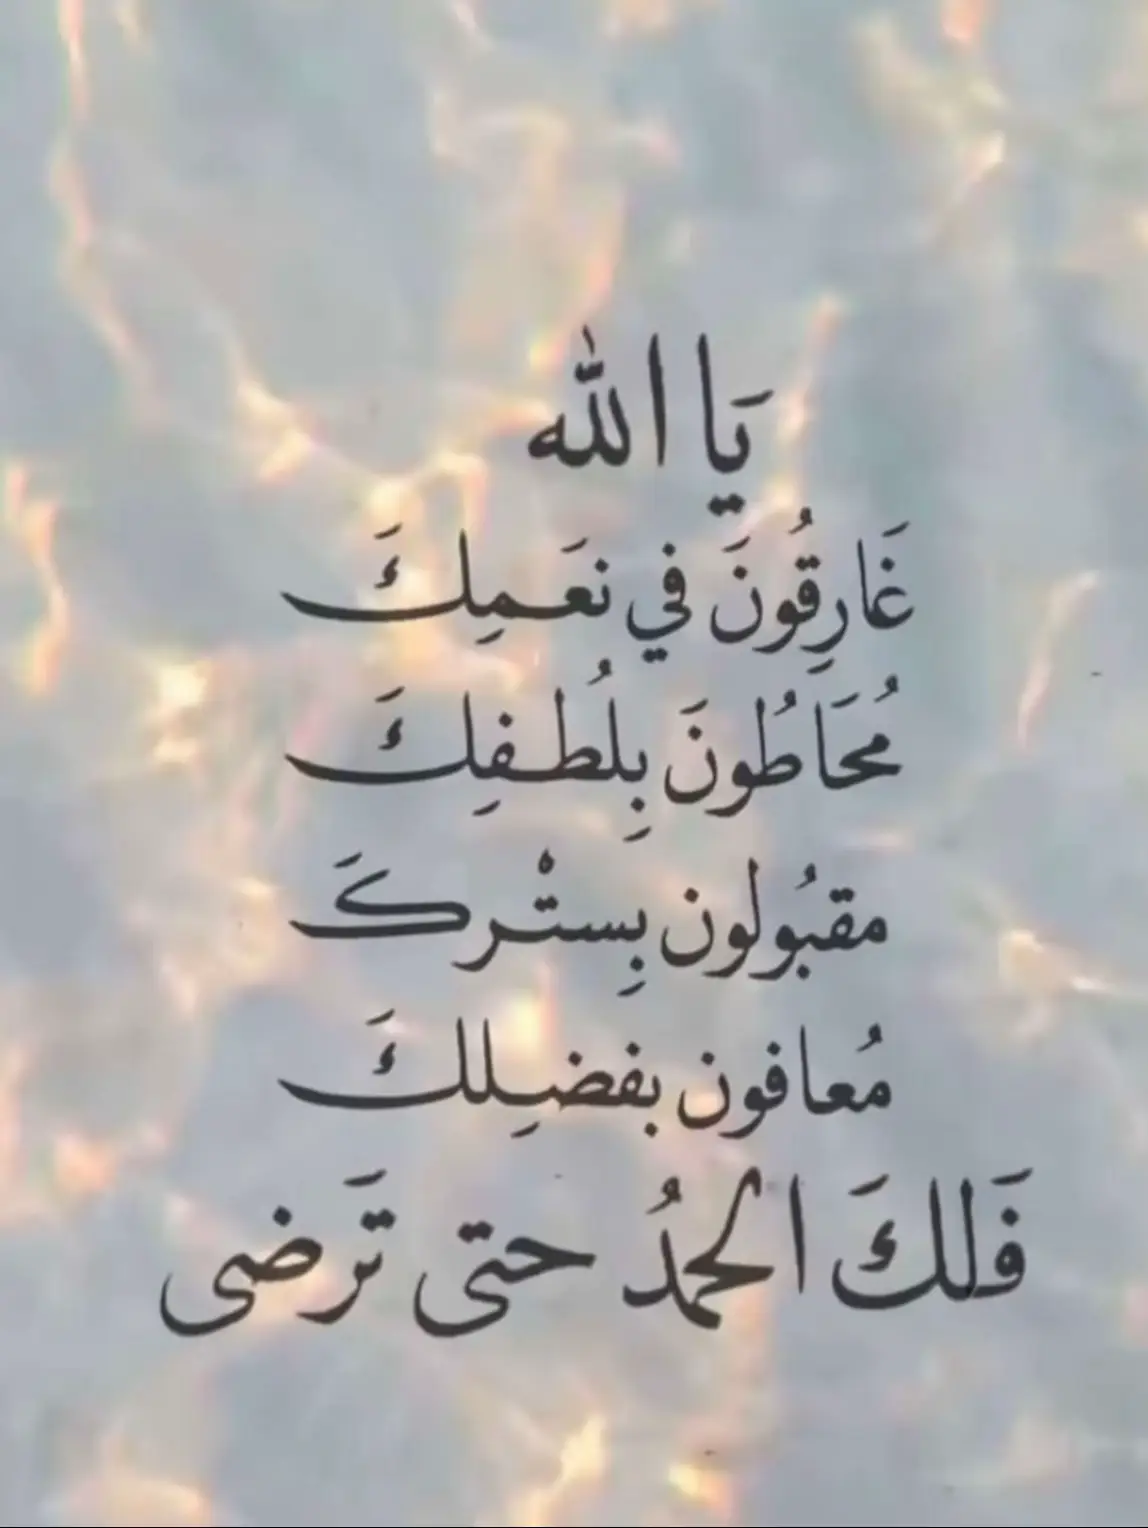 يَا الله
غَارِقُونَ في نعَمِكَ
مُحَاطُونَ بِلُطفِكَ
مقبُولون بِستْركَ
مُعافون بفضِلكَ
فَلكَ الحمدُ حتى تَرضى